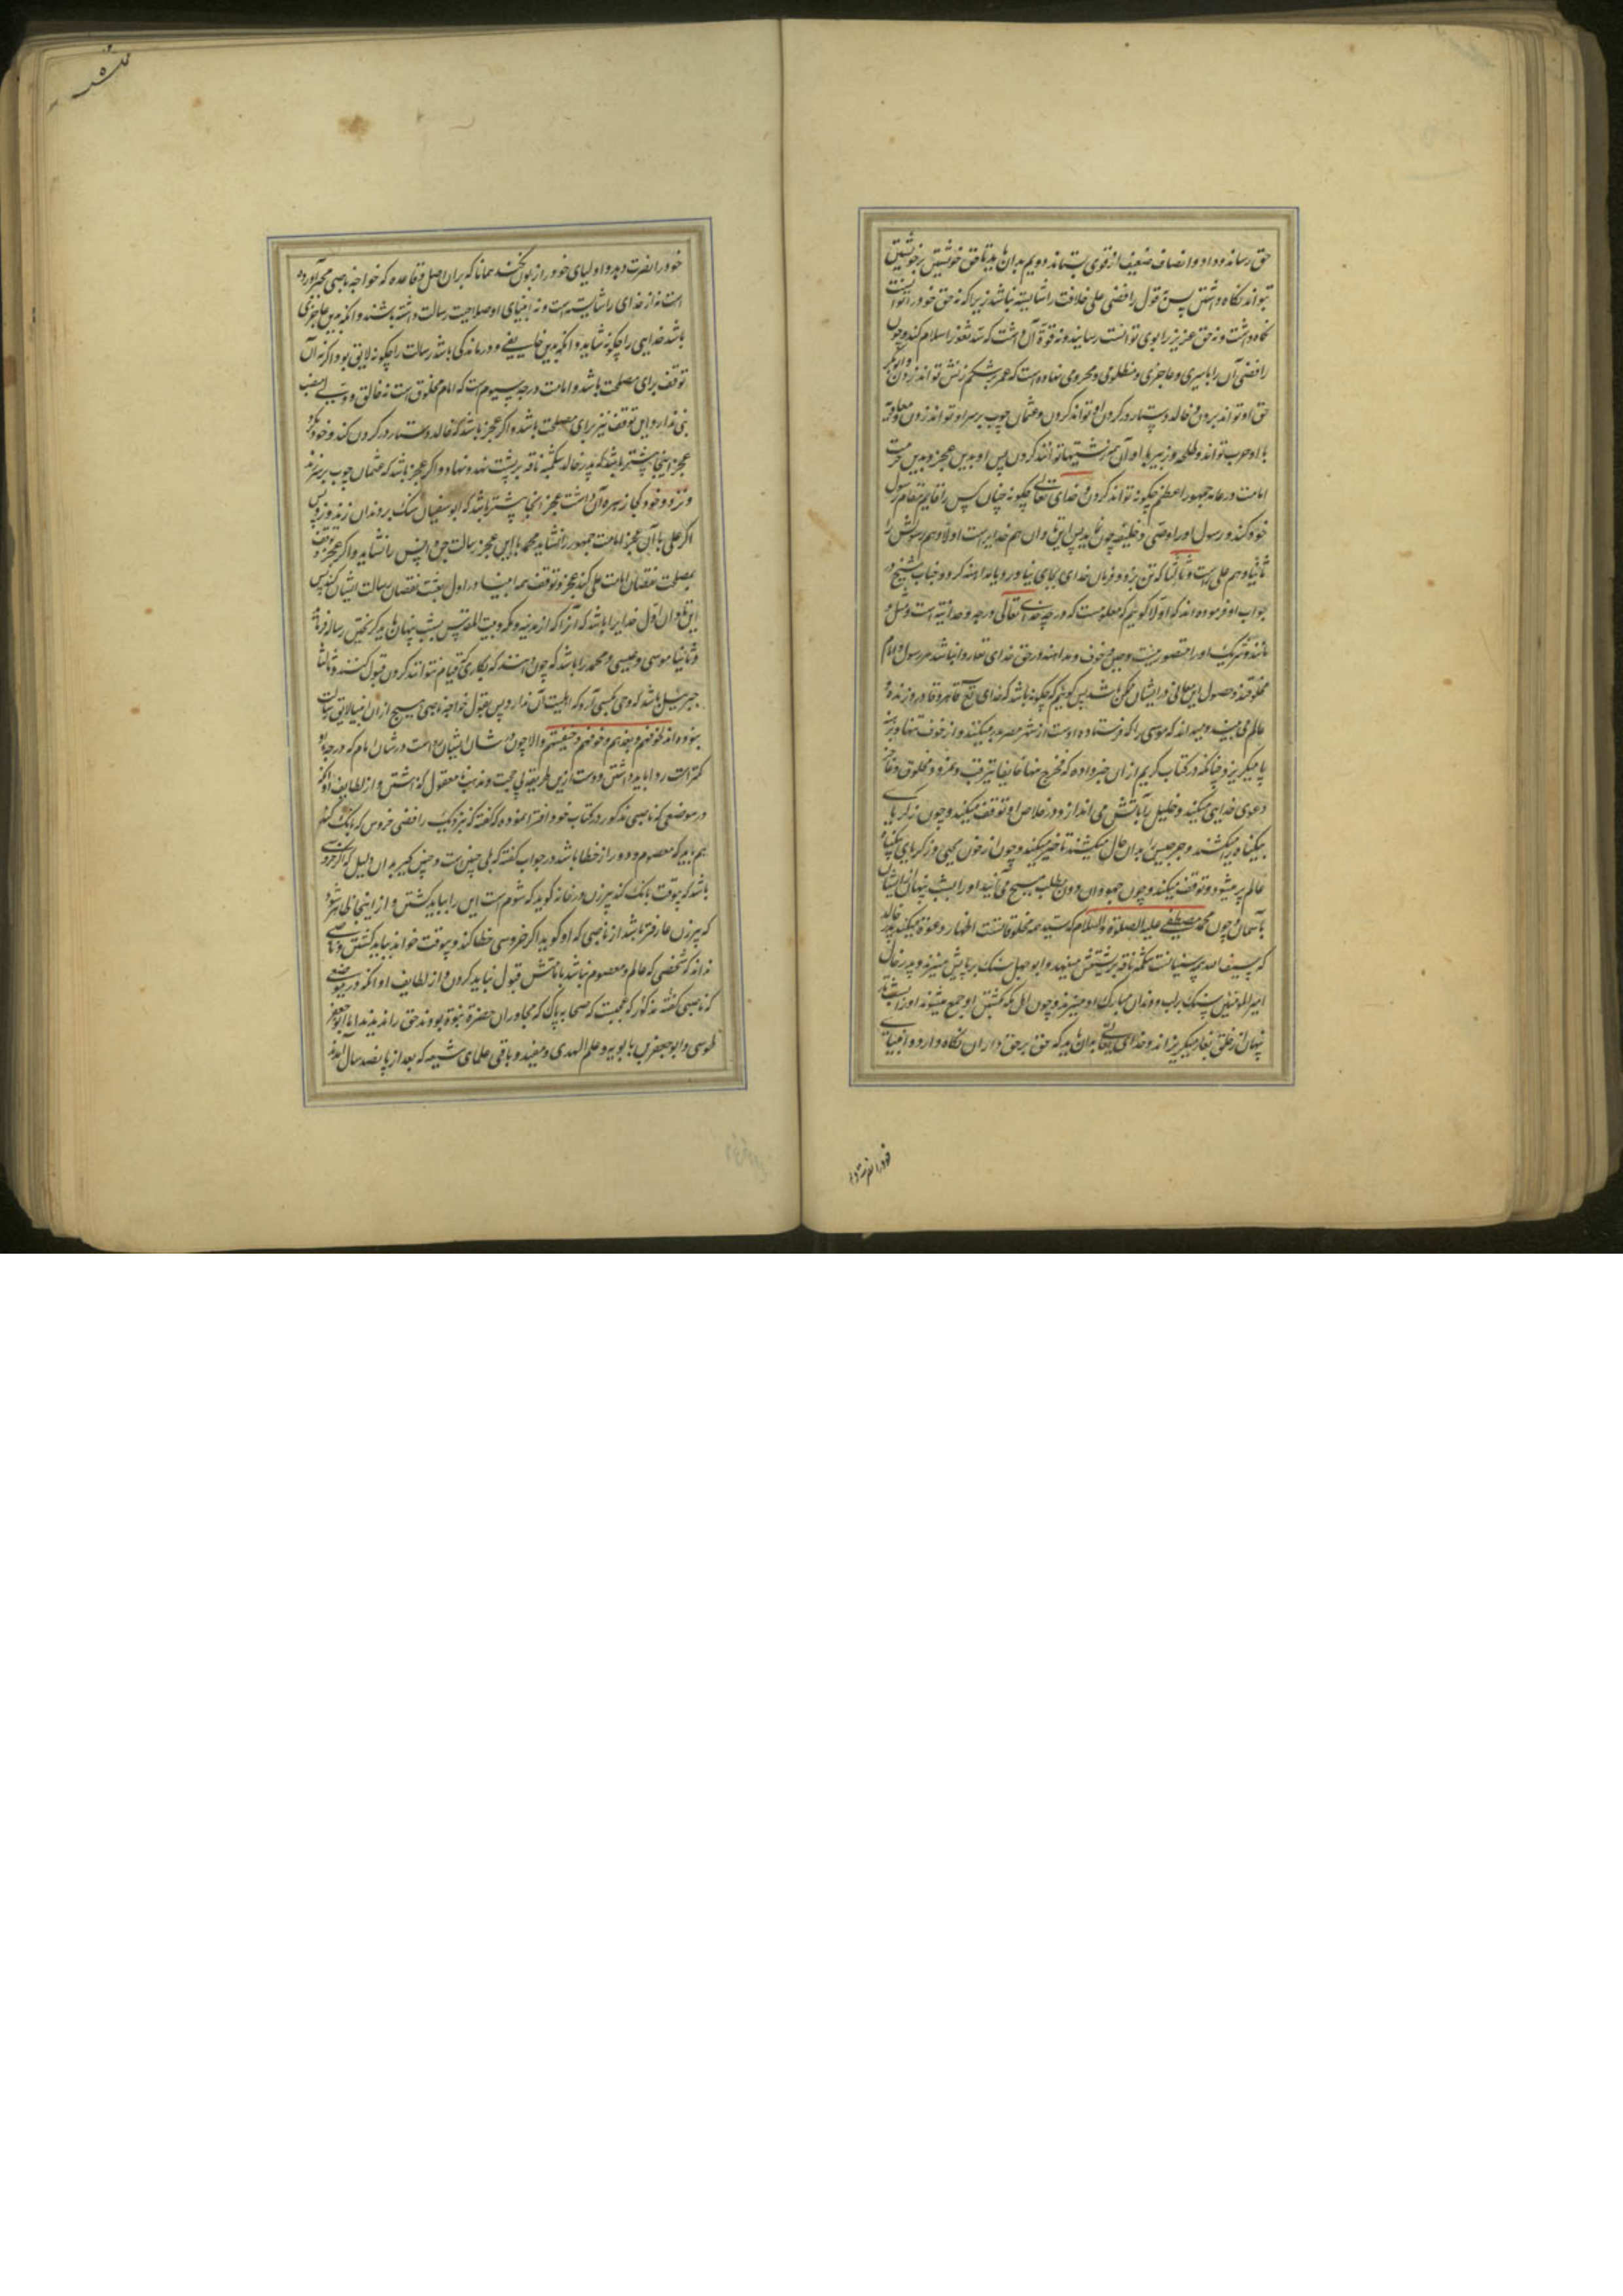 حق رساند و داد و انصاف ضعیف از قوی بستاند دویم بدان باید تا حق خویشتن بر خویشتن
بتواند نگاه داشتن پس بقول رافضی علی خلافت را شایسته نباشد زیرا که نه حق خود را توانست
نگاه داشت و نه حق عزیز را بوی توانست رسانید و نه قوة آن داشت که سد ثغور اسلام کند و چون
رافضی آن را باسیری و عاجزی و مظلومی و محرومی نهاده است که عمر بر شکم زنش تواند زدن و ابوبکر
حق او تواند بردن و خالد دستار در گردن او تواند کردن و عثمان چوب بر سر او تواند زدن و معاویه
با او حرب تواند و طلحه و زبیر با او آن توانند کردن پس او بدین عجز و بدین حرمت
امامت و رعایه جمهور اعظم چگونه تواند کردن و خدای تعالی چگونه چنان کس را قایم مقام رسول
خود کند و رسول او را وصی و خلیفه چون این هم خدایراست اولا و هم رسولش را
ثانیا و هم علی راست و ثالثا که تن بزد و فرمان خدای بجای نیاورد و مداهنه کرد و جناب شیخ در
جواب او فرموده اند که اولا گوییم که معلومست که درجه خدای تعالی درجه وحدانیة است و مثل و
مانند و شریک او را متصور نیست و جبن و خوف و مداهنه در حق خدای تعالی روا نباشد و رسول و امام
مخلوقند و حصول این معانی در ایشان ممکن باشد پس گوییم که چگونه باشد که خدای تعالی قاهر و قادر و زنده و
عالم می بیند و میداند که موسی را که فرستاده اوست از شهر مصر بدر میکنند و از خوف تنها و برهنه
پا میگریزد چنانکه در کتاب کریم از آن خبر داده که فخرج منها خایفا یترقب و نمرود مخلوق و عاجز
دعوی خدایی میکند و خلیل را بآتش می اندازد و در خلاص او توقف میکند و چون زکریای
بیگناه را میکشند و جرجیس را بدان حال میکشند تاخیر میکند و چون از خون یحیی و زکریای بیگناه
عالم پر میشود و توقف میکند و چون جهودان دون بطلب مسیح می آیند او را بشب پنهان از ایشان
بآسمان و چون محمد مصطفی علیه الصلوة والسلام که سید همه مخلوقاتست اظهار دعوة میکند پدر خالد
که سیف الله سنیانست شکمبه ناقه بر پشتش مینهد و ابوجهل سنگ بر پایش میزند و پدر خال
امیرالمؤمنین سنگ بر لب و دندان مبارک او میزند و چون اهل مکه بکشتن او جمع میشوند او را بشب
پنهان از خلق بغار میگریزاند و خدای تعالی بدان باید که حق بر حق داران نگاه دارد و انبیای
خود را نصرت دهد
خود را نصرت دهد و اولیای خود را زبون نکند همانا که بران اصل و قاعده که خواجه ناصبی مجبر آورده
است نه از خدای را شایسته است و نه انبیای او صلاحیت رسالت داشته باشند و آنکه بدین عاجزی
باشد خدایی را چگونه شاید و آنکه بدین ضعیفی و درماندگی باشد رسالت را چگونه لایق بود و اگر نه آن
توقف برای مصلحت باشد و امامت درجه سیوم است که امام مخلوق است نه خالق و وصی است
نبی ندارد این توقف نیز برای مصلحت باشد و اگر عجز باشد که خالد دستار در گردن کند و خود
عجز اینجا بیشتر باشد که پدر خالد شکمبه ناقه بر پشت نهد و نهاد و اگر عجز باشد که عثمان چوب بر سر زند
و نزد و خود کجا زهره آن داشت عجز انجا بیشتر باشد که ابوسفیان سنگ بر دندان زند و زد پس
اگر علی با آن عجز امامت جمهور را نشاید محمد با این عجز رسالت جن و انس را نشاید و اگر عجز و توقف
بمصلحت نقصان امامت علی کند عجز و توقف همه انبیا در اول بعثت نقصان رسالت ایشان کند پس
این تاوان اول خدایرا باشد که آنرا که از مدینه و مکه و بیت المقدس بشب پنهان باید گریختن رساله فرماید
و ثانیا موسی و عیسی و محمد را باشد که چون دانند که بکاری قیام نتوانند کردن قبول کنند و ثالثا
جبرییل باشد که وحی بکسی آرد که اهلیت آن ندارد پس بقول خواجه ناصبی هیچ از ان انبیا لایق رسالت
نبوده اند و الا چون در شان ایشان رواست در شان امام که درجه او
کمتر است روا باید داشتن و دست ازین طریقه بی حجت و مذهب نامعقول گذاشتن و از لطایف او آنکه
در موضعی که ناصبی مذکور در کتاب خود افترا نموده که گفته که نزدیک رافضی خروس که بانک کند
هم باید که معصوم و دور از خطا باشد در جواب گفته که بلی چنین است و چنین گیر بدان دلیل که اگر خروسی
باشد که بیوقت بانک کند پیرزن در خانه گوید که شوم است این را بباید کشتن و از اینجا ظاهر شود
که پیرزن عارفتر باشد از ناصبی که او گوید اگر خروسی خطا کند و بیوقت خواند بباید کشتن و ناصبی
نداند که شخصی که عالم و معصوم نباشد بامامتش قبول نباید کردن و از لطایف او آنکه در موضعی
که ناصبی گفته مذکور که عجبست که صحابه پاک که مجاوران حضرة نبوة بودند حق را ندیدند اما ابوجعفر
طوسی و ابوجعفر بابویه و علم الهدی و مفید و باقی علمای شیعه که بعد از پانصد سال آمدند